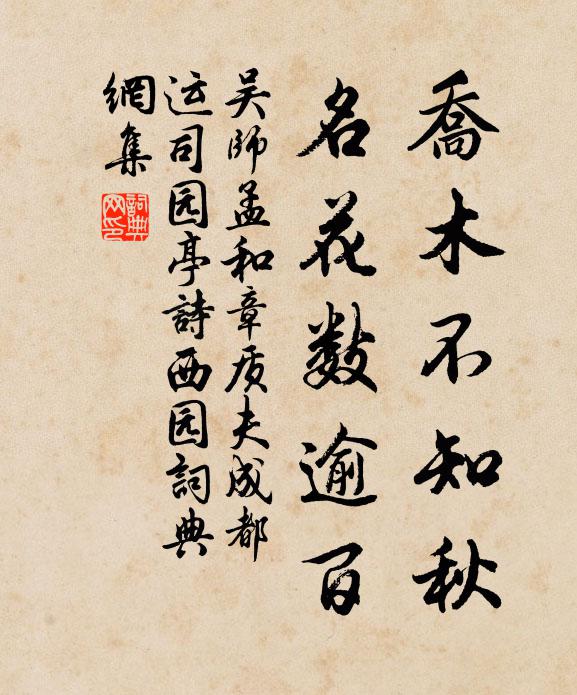 喬木不知秋
名花数逾百
吴師孟和章质夫成都
运司园亭詩西园詞典
網集
詞典网印